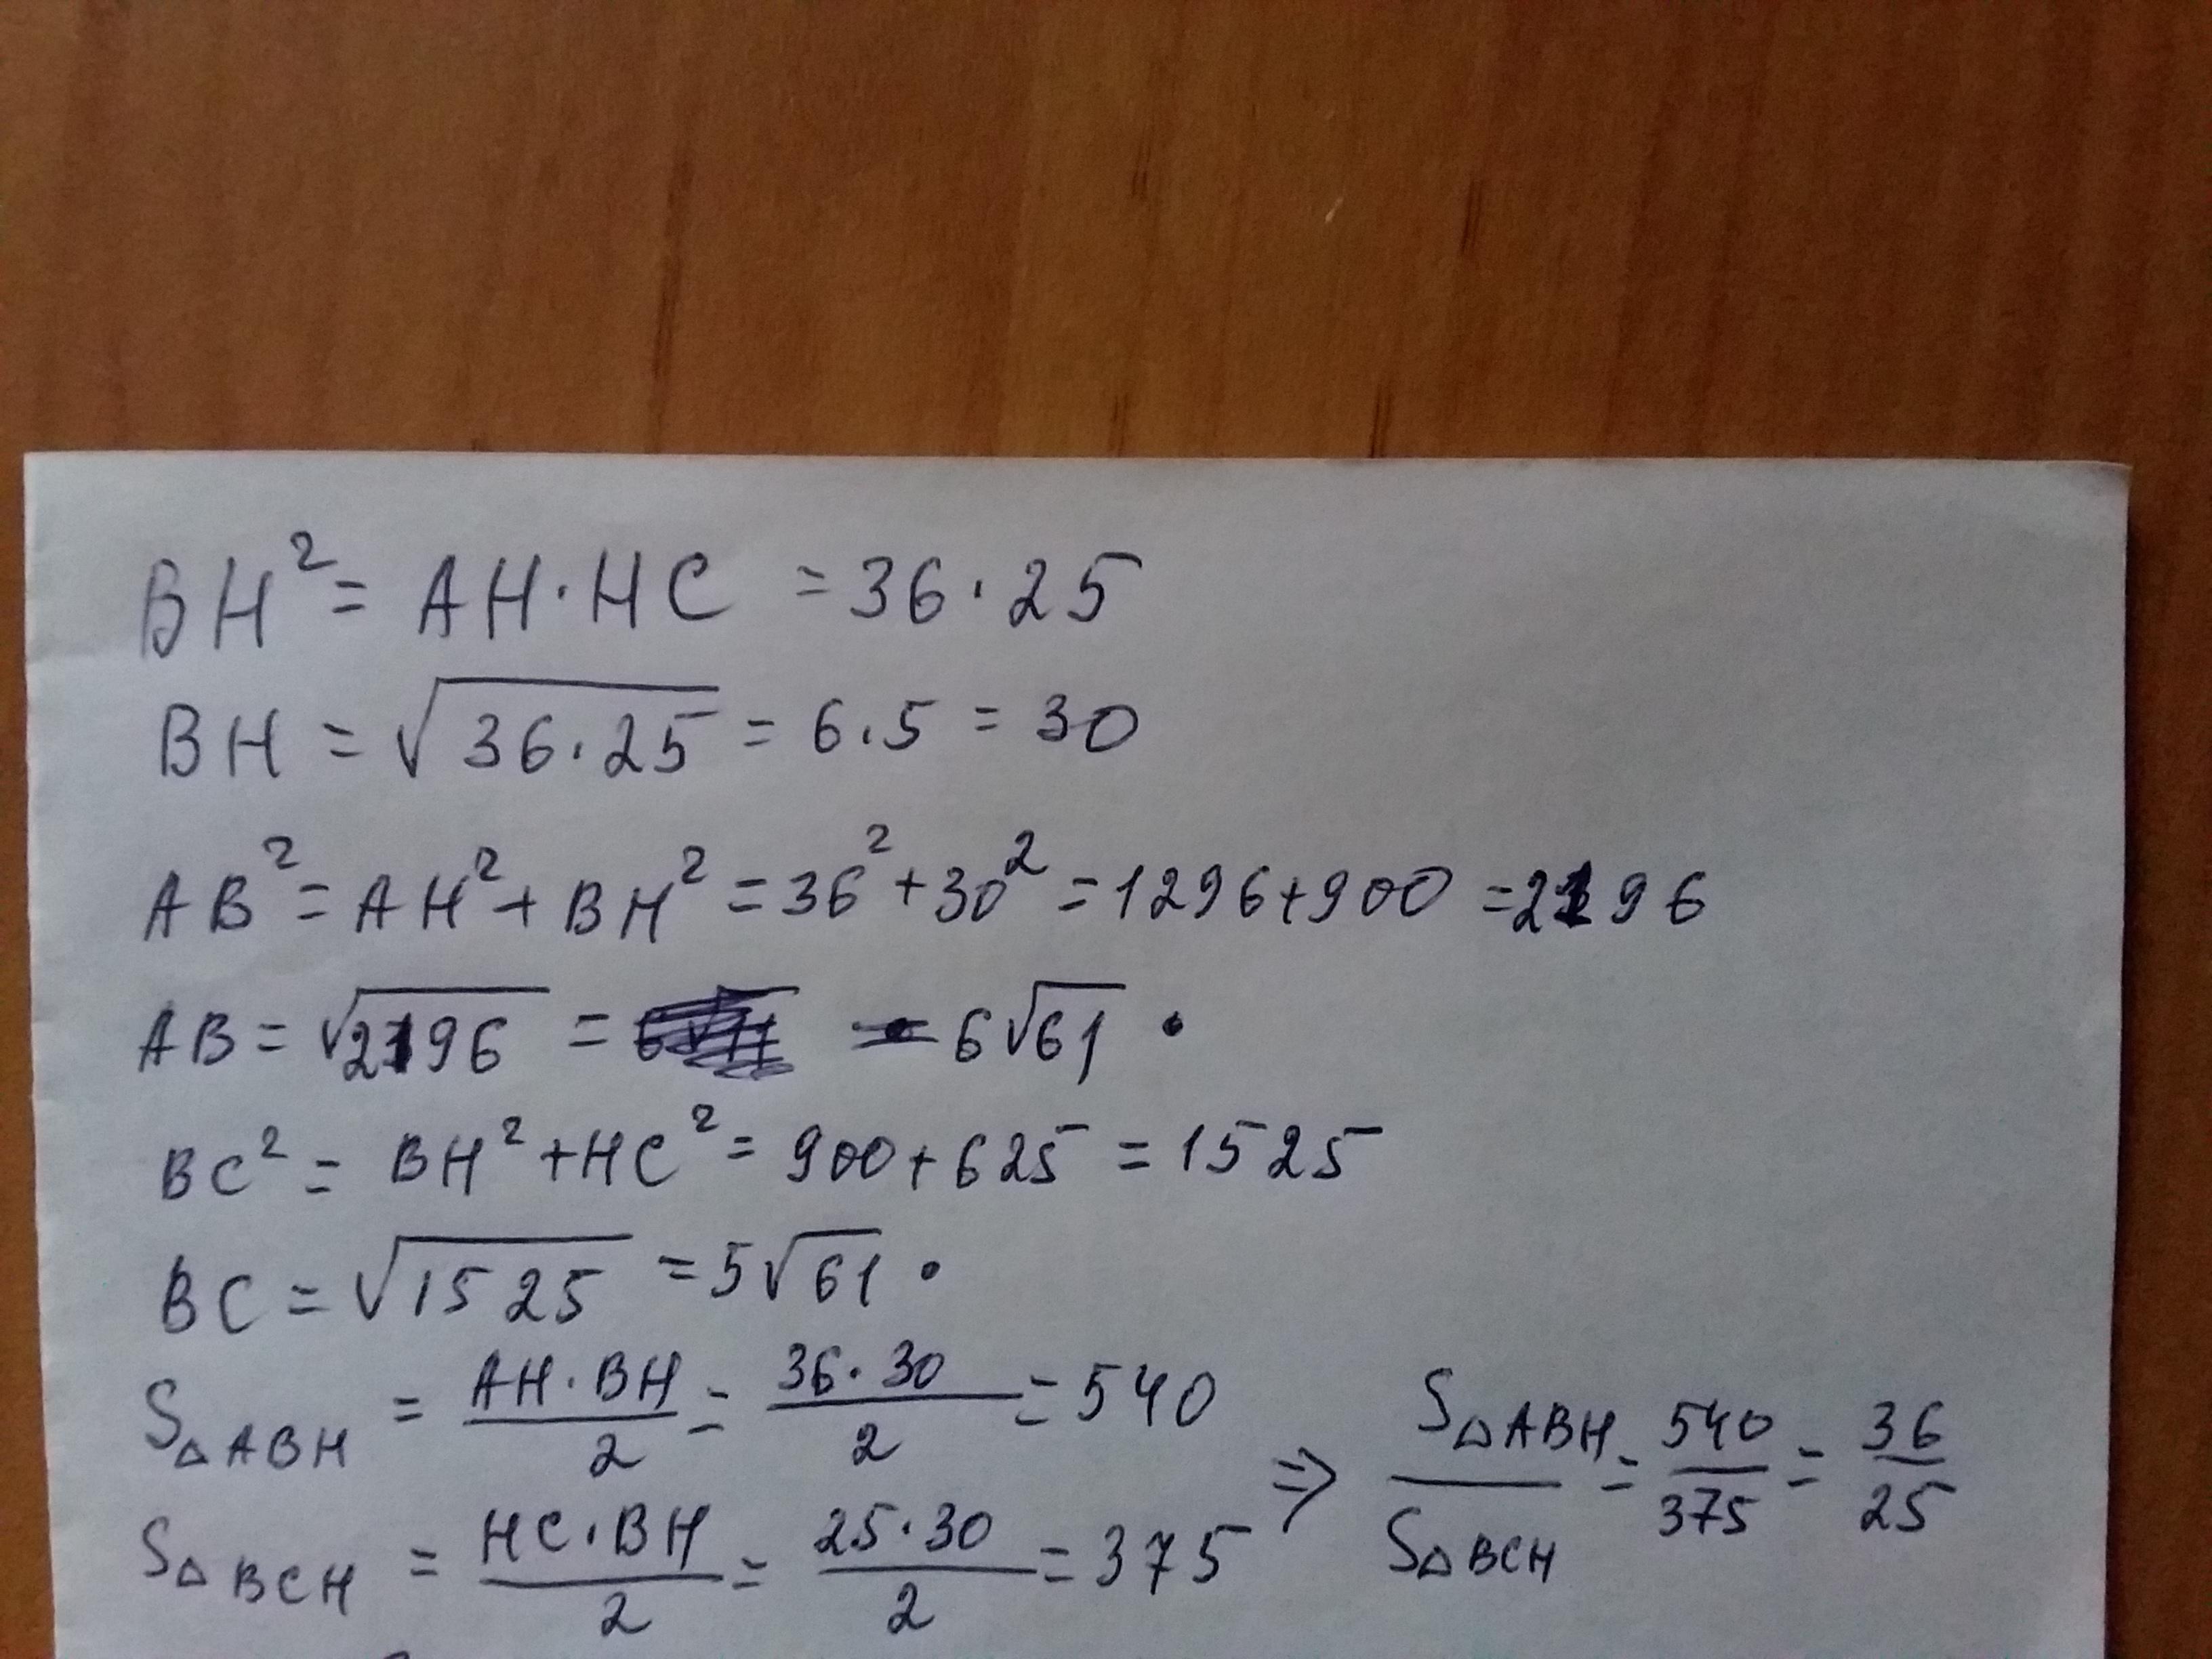 BH² = AH·HC = 36·25
BH = √36·25 = 6·5 = 30
AB² = AH² + BH² = 36² + 30² = 1296+900 = 2196
AB = √2196 = = 6√61 •
BC² = BH² + HC² = 900 + 625 = 1525
BC = √1525 = 5√61 •
S△ABH = AH·BH/2 = 36·30/2 = 540
S△BCH = HC·BH/2 = 25·30/2 = 375
⇒ S△ABH/S△BCH = 540/375 = 36/25